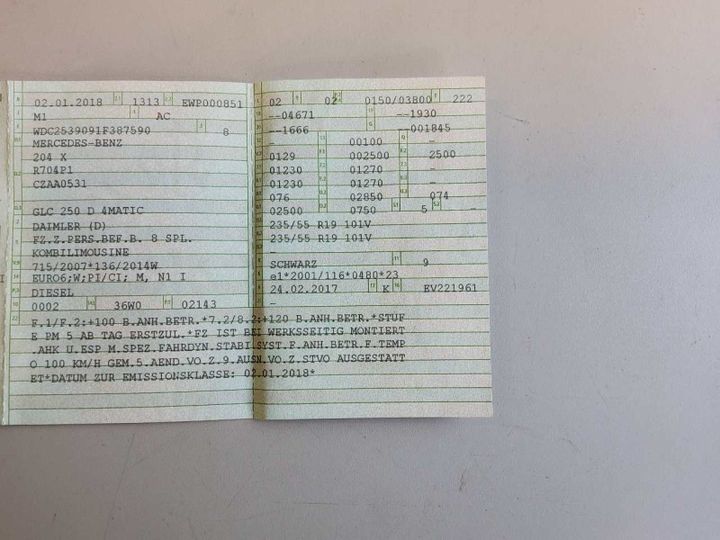 02.01.2018 1313 EWP000851
M1 AC
WDC2539091F387590 8
MERCEDES-BENZ
204 X
R704P1
CZAA0531
GLC 250 D 4MATIC
DAIMLER (D)
FZ.Z.PERS.BEF.B. 8 SPL.
KOMBILIMOUSINE
715/2007*136/2014W
EURO6;W;PI/CI; M, N1 I
DIESEL
0002 36W0 02143
02 02 0150/03800 222
--04671 --1930
--1666 -001845
- 00100 -
0129 002500 2500
01230 01270 -
01230 01270 -
076 02850 074
02500 0750 5 -
235/55 R19 101V
235/55 R19 101V
-
SCHWARZ 9
e1*2001/116*0480*23
24.02.2017 K EV221961
-
F.1/F.2:+100 B.ANH.BETR.*7.2/8.2:+120 B.ANH.BETR.*STUF
E PM 5 AB TAG ERSTZUL.*FZ IST BEI WERKSSEITIG MONTIERT
.AHK U.ESP M.SPEZ.FAHRDYN.STABI.SYST.F.ANH.BETR.F.TEMP
O 100 KM/H GEM.5.AEND.VO.Z.9.AUSN.VO.Z.STVO AUSGESTATT
ET*DATUM ZUR EMISSIONSKLASSE: 02.01.2018*